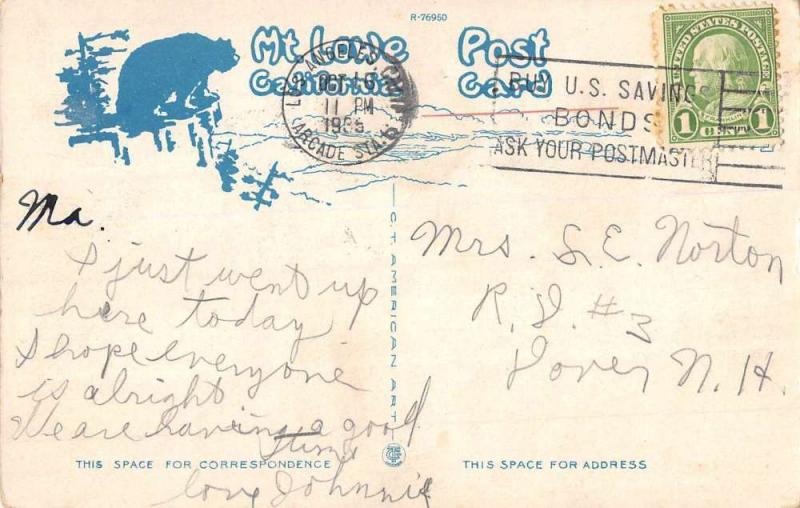 R-76950
Mt Lowe
California
Post
Card
LOS ANGELES CALIF.
OCT 15
11 PM
1935
ARCADE STA.
BUY U.S. SAVINGS
BONDS
ASK YOUR POSTMASTER
UNITED STATES POSTAGE
1 1
Ma.
I just went up
here today
I hope everyone
is alright
We are having a good
time
love Johnnie
C.T. AMERICAN ART
Mrs. S. E. Norton
R. D. #3
Dover N. H.
THIS SPACE FOR CORRESPONDENCE
THIS SPACE FOR ADDRESS